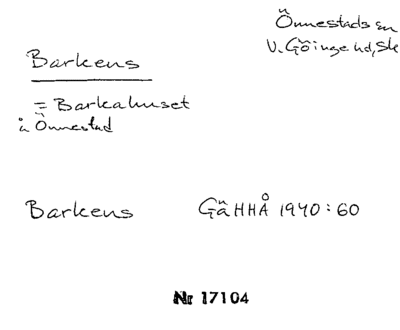 Önnestads sn
V. Göinge hd, Sk
Barkens
= Barkahuset
å Önnestad
Barkens GäHHÅ 1940:60
Nr 17104